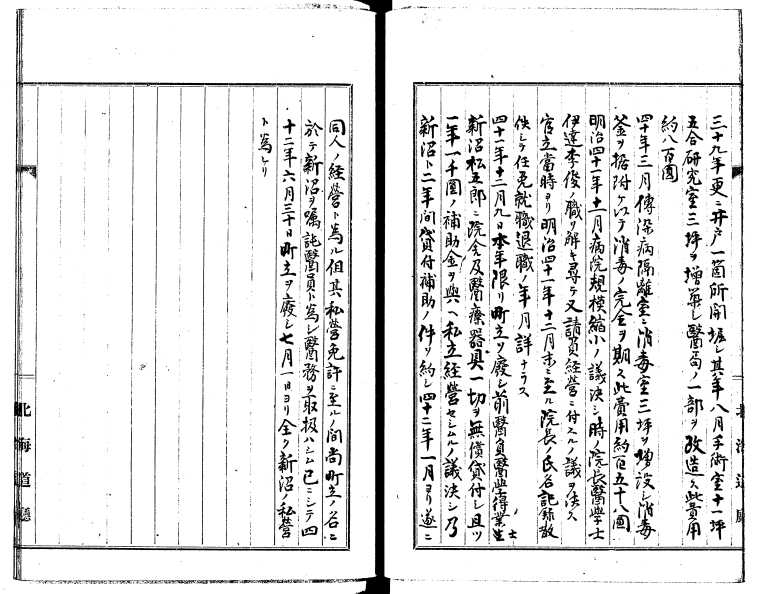 三十九年更ニ井戸一箇所開堀シ其年八月手術室十一坪
五合研究室三坪ヲ増築シ醫局ノ一部ヲ改造ス此費用
約八百圓
四十年三月傳染病隔離室ニ消毒室三坪ヲ増設シ消毒
釜ヲ据附ケ以テ消毒ノ完全ヲ期ス此費用約百五十八圓
明治四十一年十一月病院規模縮小ノ議決シ時ノ院長醫學士
伊達李俊ノ職ヲ解キ尋テ又請負經營ニ付スルノ議ヲ決ス
官立當時ヨリ明治四十一年十二月末ニ至ル院長ノ氏名記録散
佚シテ任免就職退職ノ年月詳ナラス
四十一年十二月九日本年限リ町立ヲ廢シ前醫員醫學得業士
新沼私五郎ニ院舍及醫療器具一切ヲ無償貸付シ且ツ
一年一千圓ノ補助金ヲ與ヘ私立經營セシムルノ議決シ乃
新沼ト二年間貸付補助ノ件ヲ約シ四十二年一月ヨリ遂ニ
北海道廳
同人ノ經營ト爲ル但其私營免許ニ至ルノ間尚町立ノ名ニ
於テ新沼ヲ囑託醫員ト爲シ醫務ヲ取扱ハシム已ニシテ四
十二年六月三十日町立ヲ廢シ七月一日ヨリ全ク新沼ノ私營
ト爲レリ
北海道廳